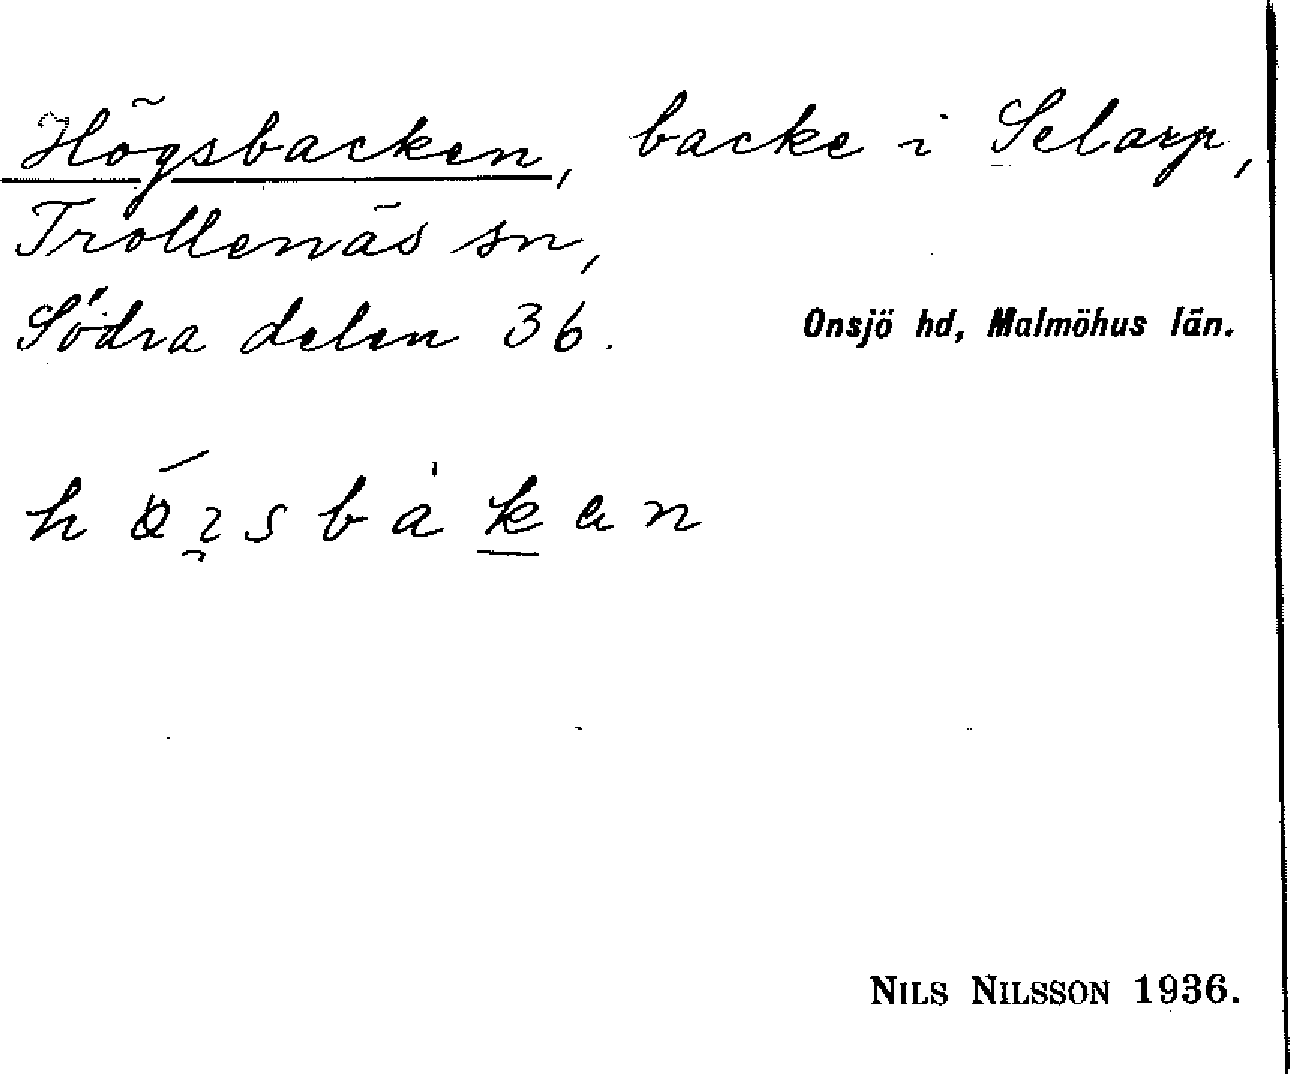 Högsbacken, backe i Selarp,
Trollenäs sn,
Södra delen 36.
Onsjö hd, Malmöhus län.
NILS NILSSON 1936.